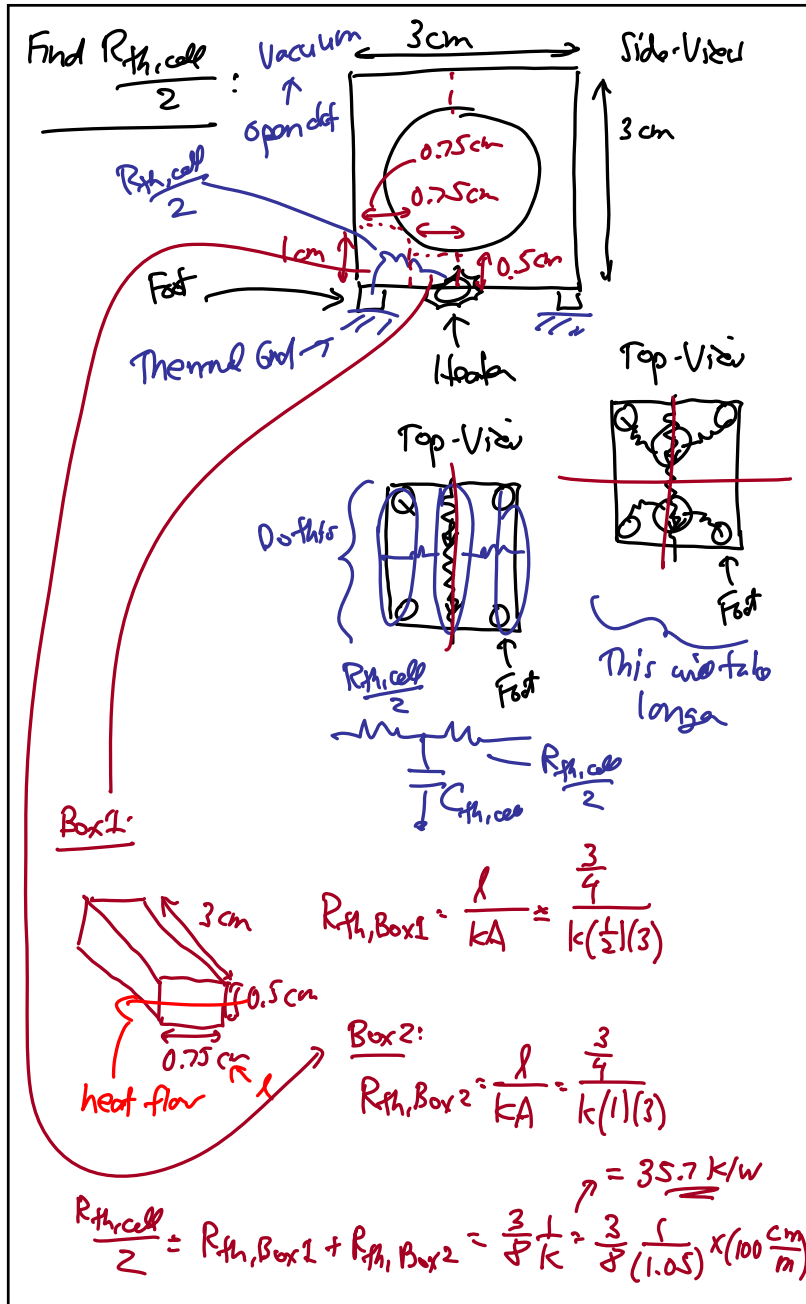 Find R_th,cell/2 :
Vacuum
↑
open ckt
3cm
Side-View
3cm
R_th,cell/2
0.75cm
0.75cm
1cm
0.5cm
Foot
Thermal Gnd
Heater
Top-View
Top-View
Do this
Foot
Foot
This will take
longer
R_th,cell/2
R_th,cell/2
C_th,cell
Box1:
3cm
0.5cm
0.75cm
l
heat flow
R_th,Box1 = l/kA = (3/4)/(k(1/2)(3))
Box2:
R_th,Box2 = l/kA = (3/4)/(k(1)(3))
= 35.7 K/W
R_th,cell/2 = R_th,Box1 + R_th,Box2 = 3/8 1/k = 3/8 1/(1.05) × (100 cm/m)